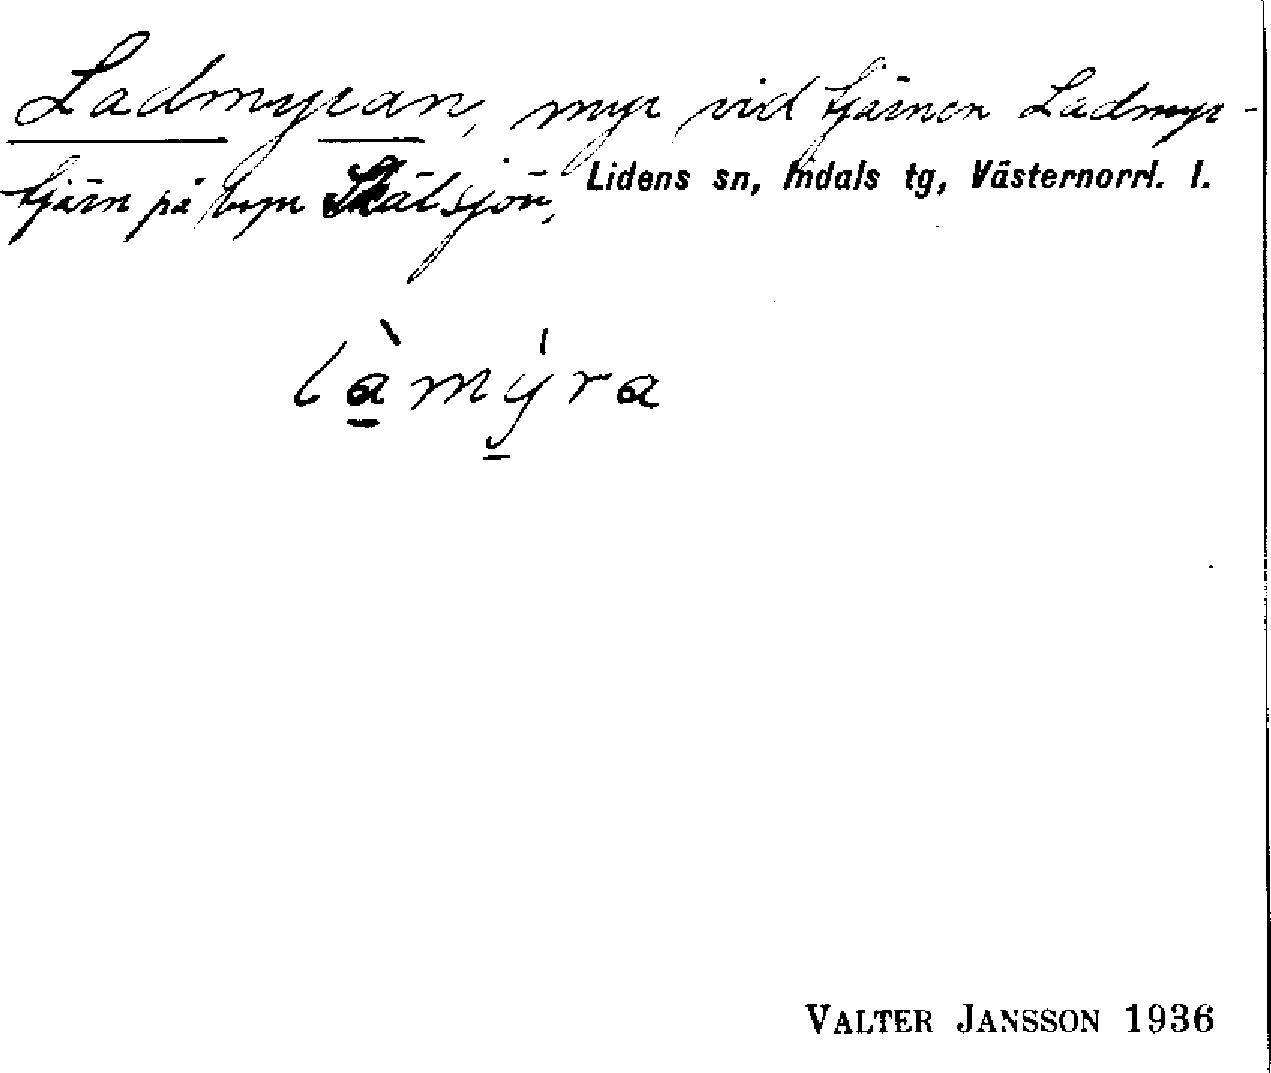 Ladmyran, myr vid tjärnen Ladmyr-
tjärn på byn Skälsjön, Lidens sn, Indals tg, Västernorrl. l.
làmýra
VALTER JANSSON 1936